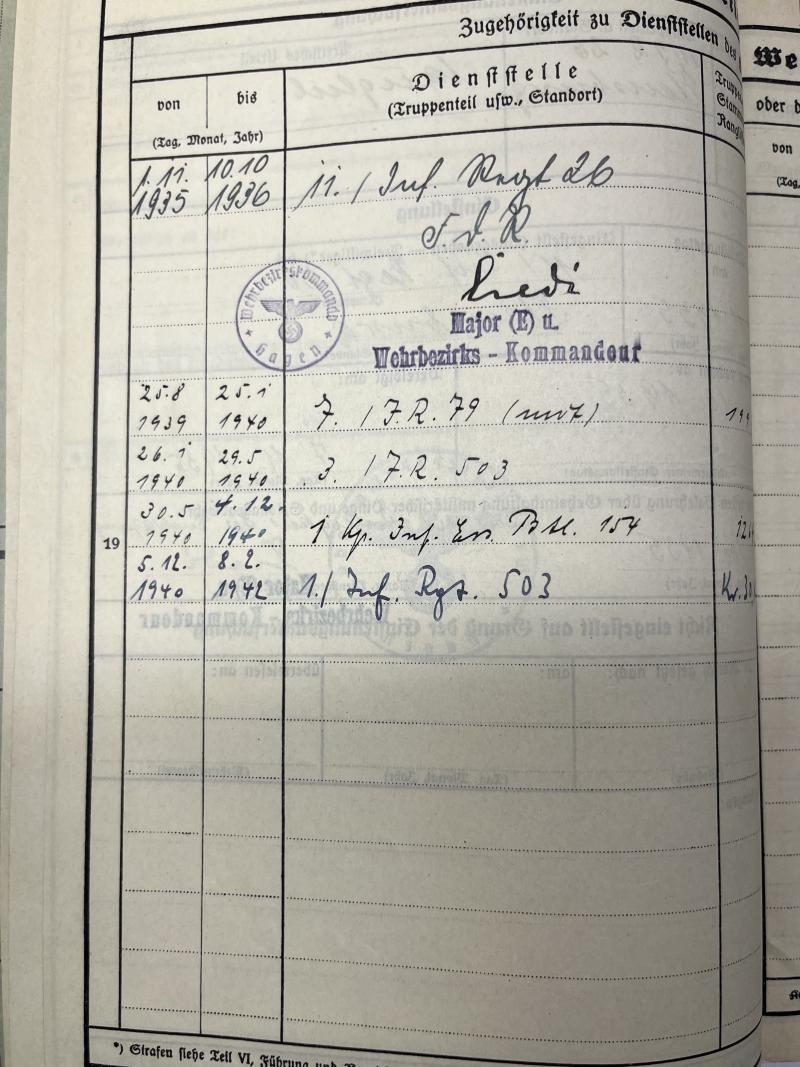 Zugehörigkeit zu Dienststellen des
von
bis
(Tag, Monat, Jahr)
Dienststelle
(Truppenteil usw., Standort)
Truppen
Stamm
Rangl
We
oder d
von
(Tag,
1.11. 10.10 11. / Inf. Regt 26
1935 1936
F.d.R.
Wehrbezirkskommando
Hagen
Major (E) u.
Wehrbezirks - Kommandeur
25.8 25.1
1939 1940 7. / J.R. 79 (mot)
26.1 29.5
1940 1940 3. / J.R. 503
30.5 4.12.
1940 1940 1 Kp. Inf. Ers. Btl. 154
19
5.12. 8.2.
1940 1942 1./ Inf. Rgt. 503
*) Strafen siehe Teil VI, Führung und